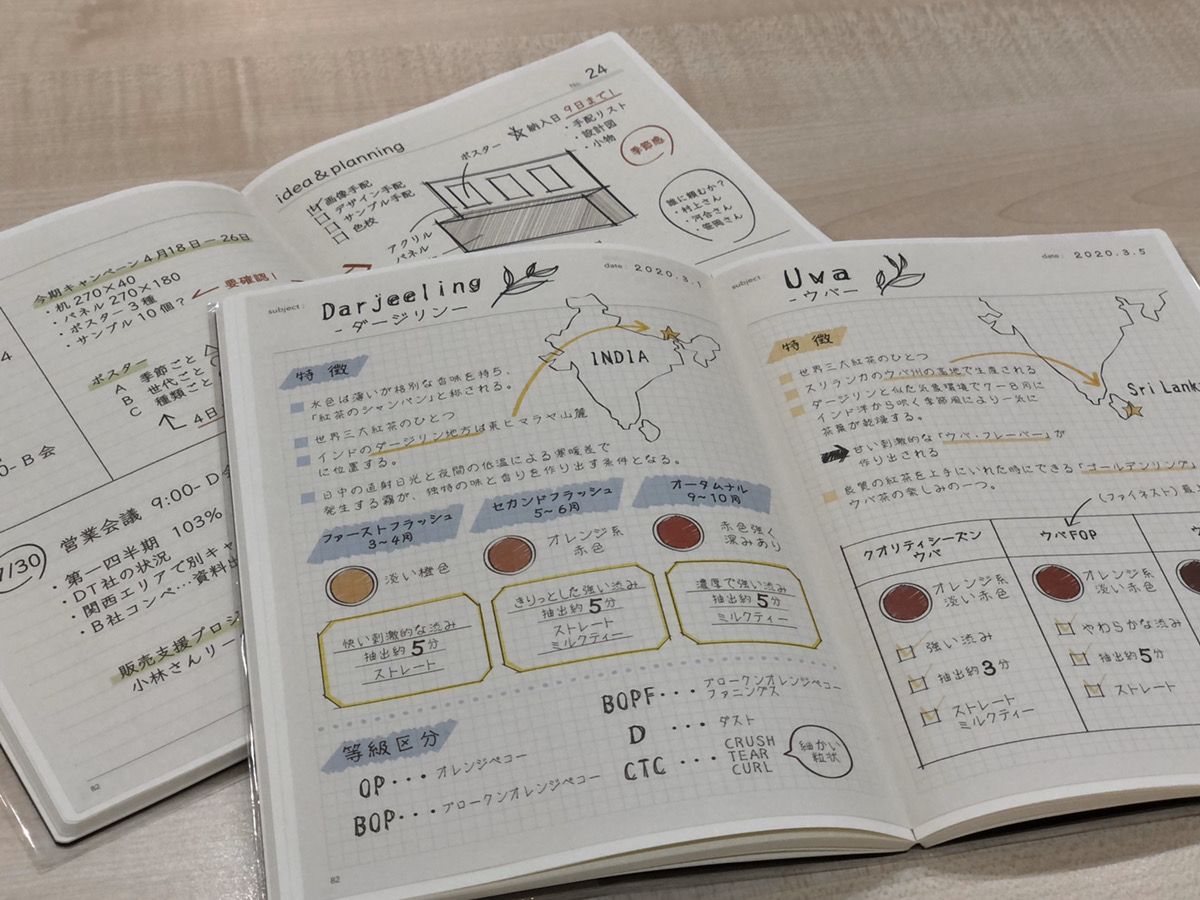 今期キャンペーン4月18日ー26日
・机270×40
・パネル270×180
・ポスター3種
・サンプル10個?
要確認!
ポスター
A 季節ごと
B 世代ごと
C 種類ごと
4日
B会
7/30
営業会議 9:00-D会
・第一四半期 103%
・DT社の状況
・関西エリアで別キャ
・B社コンペ…資料出
販売支援プロジ
小林さんリー
82
No. 24
idea&planning
画像手配
デザイン手配
サンプル手配
色校
ポスター
アクリル
パネル
納入日 9日まで!
・手配リスト
・設計図
・小物
季節感
誰に頼むか?
・村上さん
・河合さん
・笹岡さん
subject: Darjeeling
date: 2020.3.1
-ダージリンー
INDIA
特徴
水色は薄いが格別な香味を持ち、
「紅茶のシャンパン」と称される。
世界三大紅茶のひとつ
インドのダージリン地方は東ヒマラヤ山麓
に位置する。
日中の直射日光と夜間の低温による寒暖差で
発生する霧が、独特の味と香りを作り出す条件となる。
ファーストフラッシュ
3〜4月
淡い橙色
快い刺激的な渋み
抽出約5分
ストレート
セカンドフラッシュ
5〜6月
オレンジ系
赤色
きりっとした強い渋み
抽出約5分
ストレート
ミルクティー
オータムナル
9〜10月
赤色強く
深みあり
濃厚で強い渋み
抽出約5分
ミルクティー
等級区分
OP・・・オレンジペコー
BOP・・・ブロークンオレンジペコー
BOPF・・・ブロークンオレンジペコー
ファニングス
D ・・・・ダスト
CTC・・・CRUSH
TEAR
CURL
細かい
粒状
82
subject: Uwa
date: 2020.3.5
-ウバー
Sri Lanka
特徴
世界三大紅茶のひとつ
スリランカのウバ州の高地で生産される
ダージリンと似た気象環境で7-8月に
インド洋から吹く季節風により一気に
茶葉が乾燥する。
甘い刺激的な「ウバ・フレーバー」が
作り出される
良質の紅茶を上手にいれた時にできる「オールデンリング」
ウバ茶の楽しみの一つ。
(ファイネスト)最上
クオリティシーズン
ウバ
オレンジ系
淡い赤色
強い渋み
抽出約3分
ストレート
ミルクティー
ウバFOP
オレンジ系
淡い赤色
やわらかな渋み
抽出約5分
ストレート